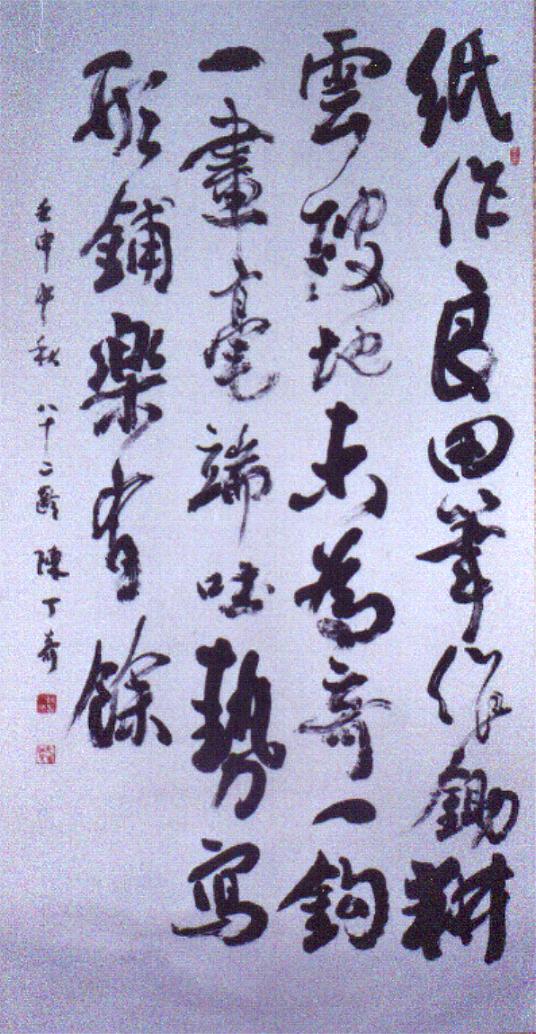 紙作良田筆作鋤耕
雲破地為奇一鈎
一畫毫端味勢寫
形鋪樂有餘
壬申中秋 八十二齡 陳丁奇